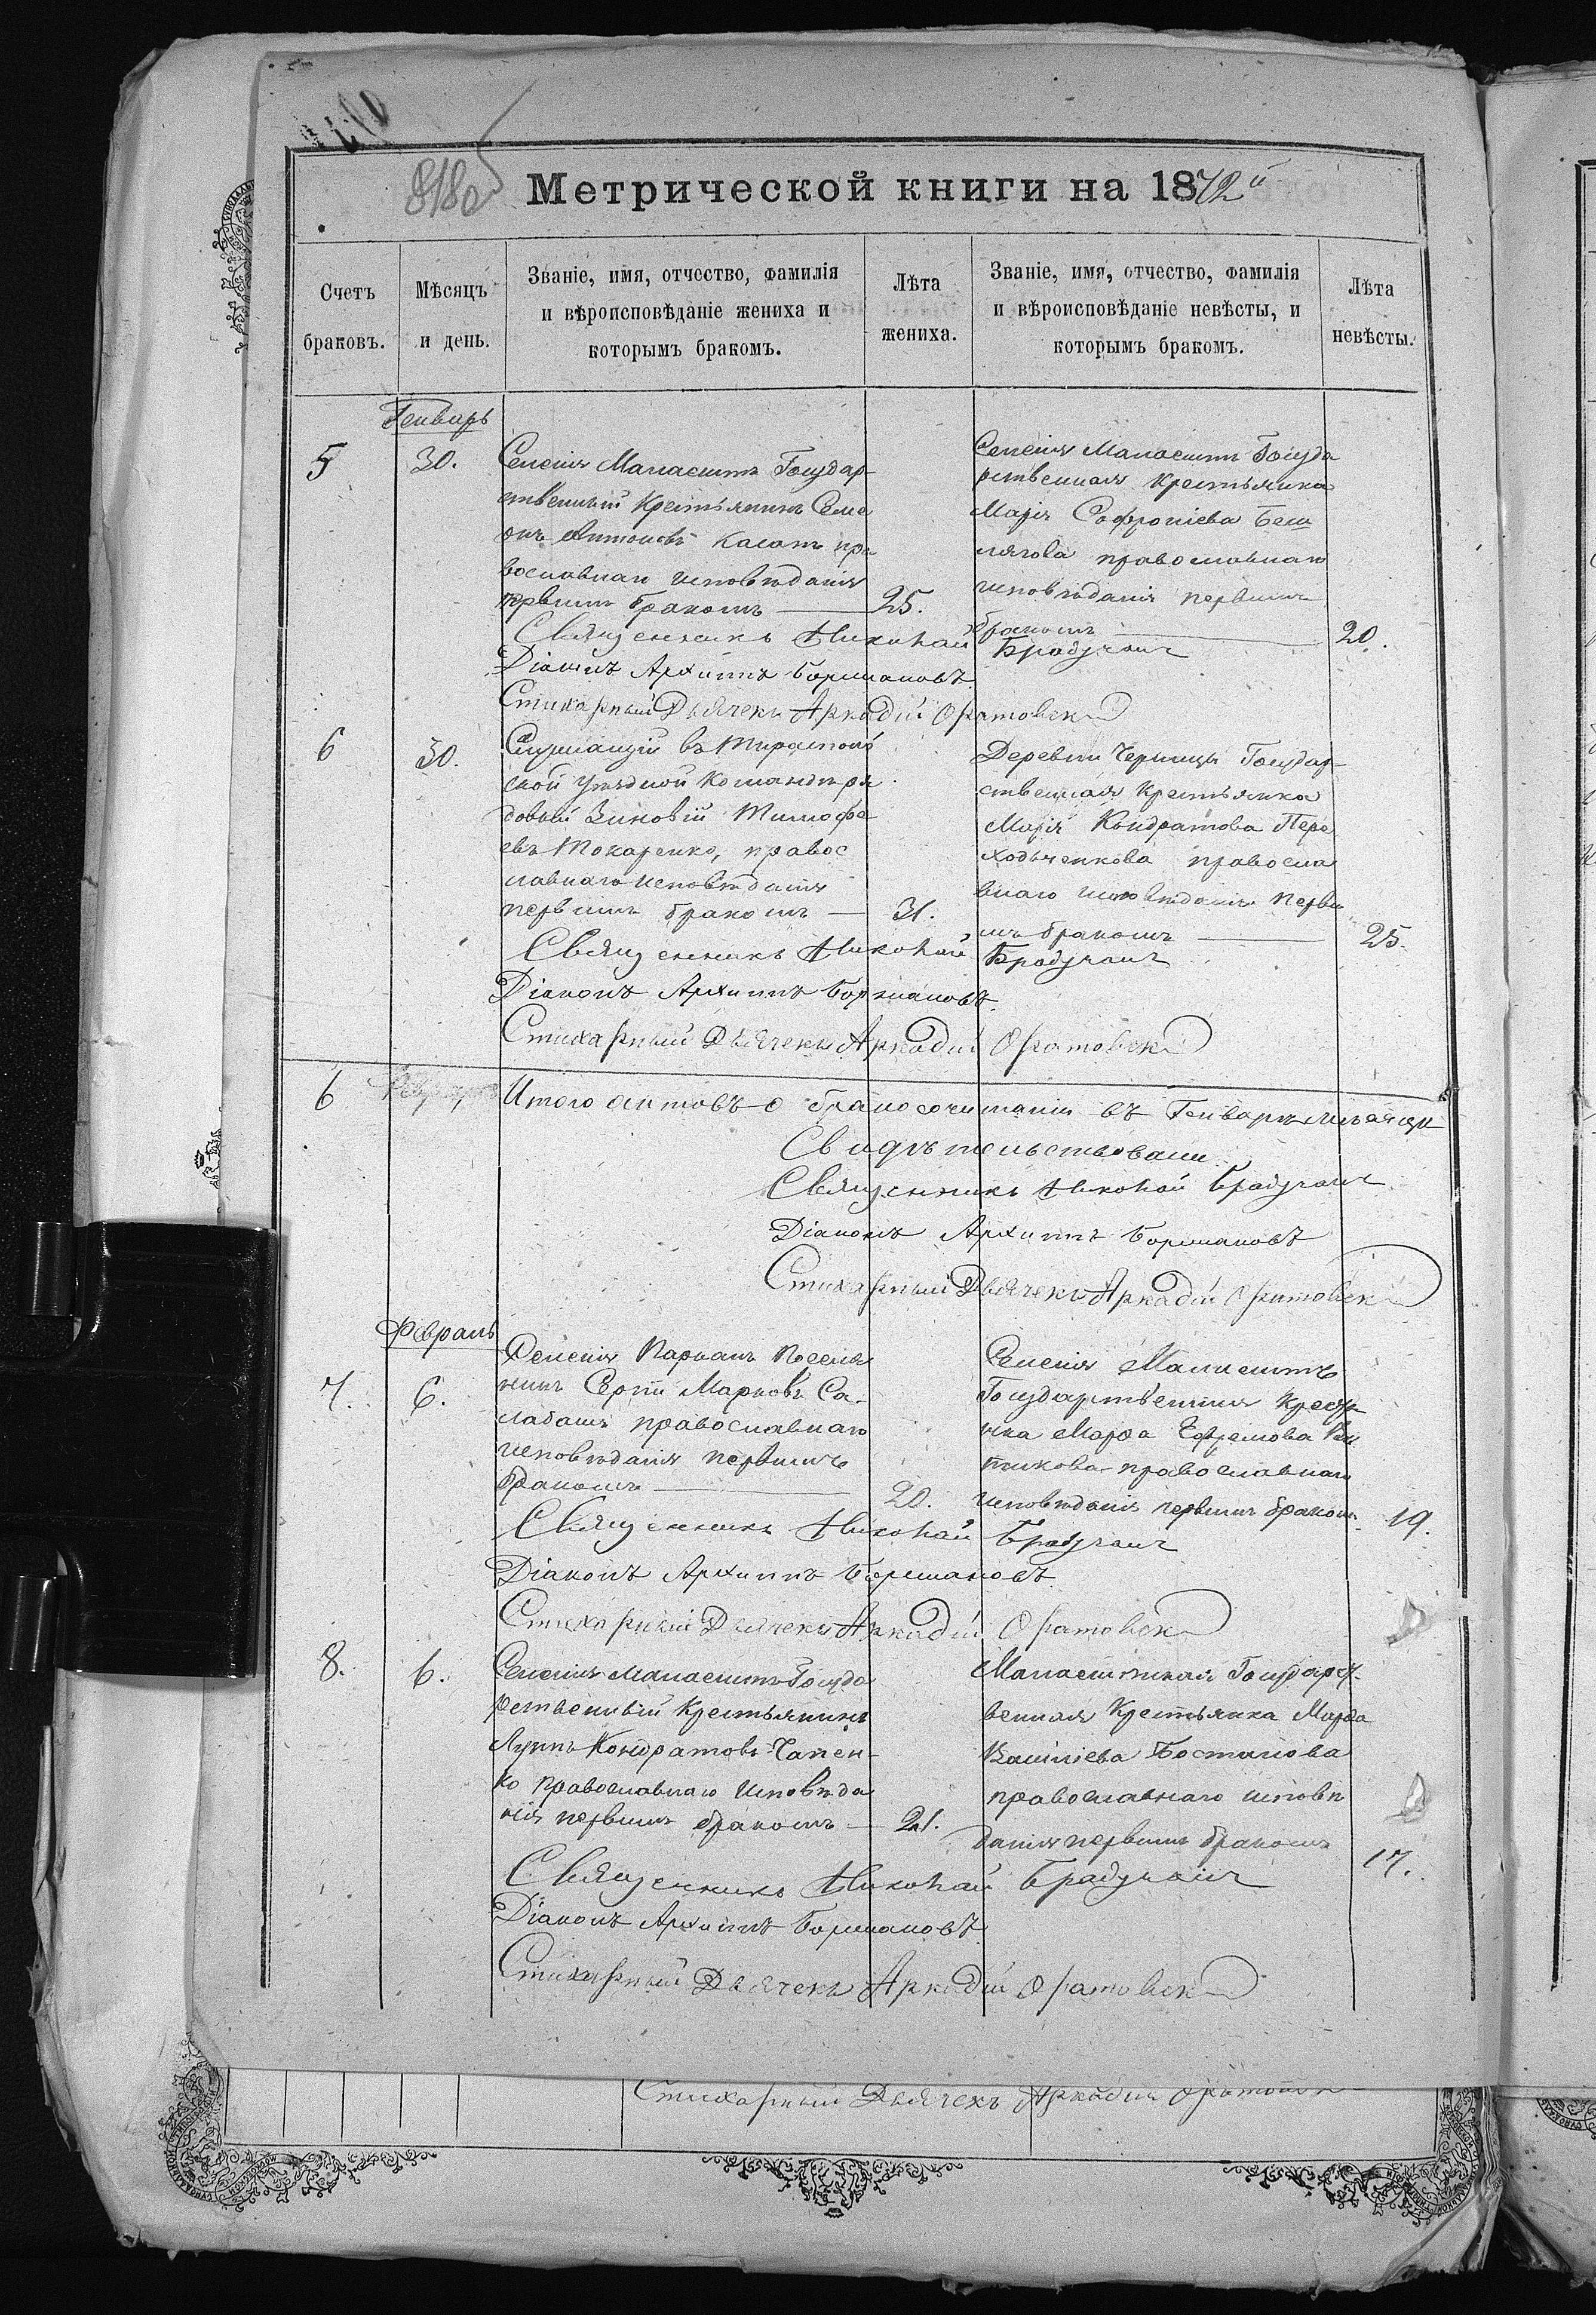 818об
Метрической книги на 1872й
Счетъ браковъ.
Мѣсяцъ и день.
Званіе, имя, отчество, фамилія
и вѣроисповѣданіе жениха и
которымъ бракомъ.
Лѣта жениха.
Званіе, имя, отчество, фамилія
и вѣроисповѣданіе невѣсты, и
которымъ бракомъ.
Лѣта невѣсты.
Генварь
5
30.
Селенія Манаештъ Государ-
ственный Крестьянинъ Семе
онъ Антоновъ Касапъ пра
вославнаго исповѣданія
первымъ бракомъ — 25.
Селенія Манаештъ Госуда
рственная Крестьянка
Марія Софроніева Беш
лягова православнаго
исповѣданія первымъ
бракомъ — 20.
Священникъ Николай Брадучанъ
Діаконъ Архиппъ Боршаковъ
Стихарный Дьячекъ Аркадій Оратовск
6
30.
Служащій въ Тираспол
ской уѣздной Командѣ ря
довый Зиновій Тимофе
евъ Токаренко, правос
лавнаго исповѣданія
первымъ бракомъ — 31.
Деревни Черницы Государ
ственная Крестьянка
Марія Кондратова Пере
ходыченкова правосла
внаго исповѣданія первы
мъ бракомъ — 25.
Священникъ Николай Брадучанъ
Діаконъ Архиппъ Боршаковъ
Стихарный Дьячекъ Аркадій Оратовск
6 Итого актовъ о бракосочитаніи въ Генварѣ мѣсяцѣ
Свидѣтельствовали
Священникъ Николай Брадучанъ
Діаконъ Архиппъ Боршаковъ
Стихарный Дьячекъ Аркадій Оратовск
Февраль
7.
6.
Селенія Паркань Поселя
нинъ Сергій Марковъ Са-
лабашъ православнаго
исповѣданія первымъ
бракомъ — 20.
Селенія Манаештъ
Государственная Крестя
нка Марфа Ефремова
православнаго
исповѣданія первымъ браком. 19.
Священникъ Николай Брадучанъ
Діаконъ Архиппъ Боршаковъ
Стихарный Дьячекъ Аркадій Оратовск
8.
6.
Селенія Манаештъ Госуда
рственный Крестьянинъ
Луппъ Кондратовъ Чапен-
ко православнаго исповѣда
нія первымъ бракомъ — 21.
Манаештская Государст-
венная Крестьянка Марфа
Василіева Бостанова
православнаго исповѣ
данія первымъ бракомъ
17.
Священникъ Николай Брадучанъ
Діаконъ Архиппъ Боршаковъ
Стихарный Дьячекъ Аркадій Оратовск
Стихарный Дьячекъ Аркадій Оратовск